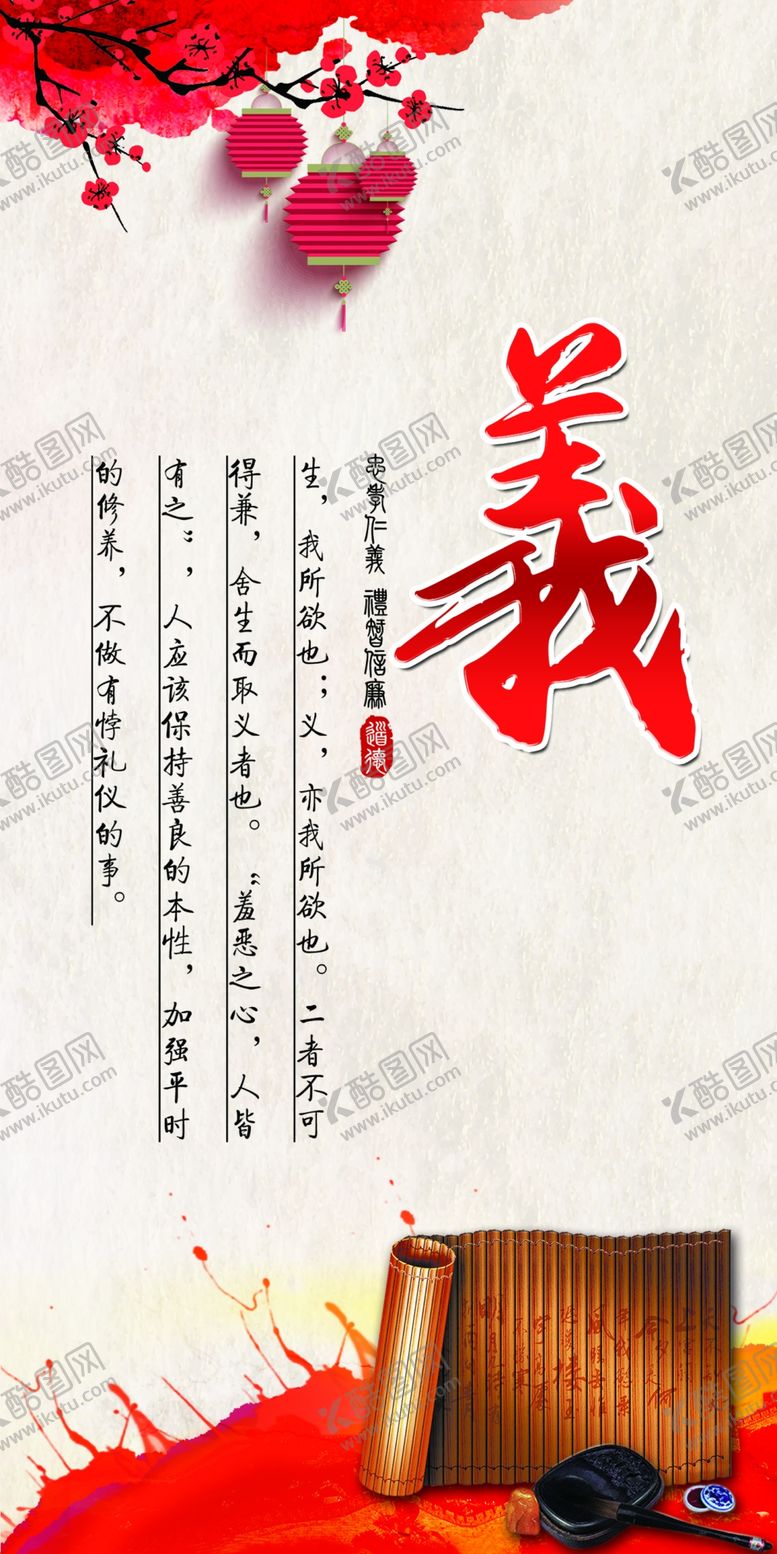 義
忠孝仁義 禮智信廉
道德
生，我所欲也；义，亦我所欲也。二者不可
得兼，舍生而取义者也。“羞恶之心，人皆
有之”，人应该保持善良的本性，加强平时
的修养，不做有悖礼仪的事。
酷图网
www.ikutu.com